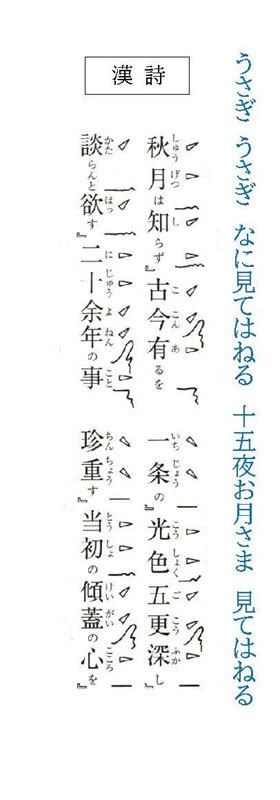 うさぎ うさぎ なに見てはねる 十五夜お月さま 見てはねる
漢詩
秋月は知らず』古今有るを 一条の』光色五更深し
談らんと欲す』二十余年の事 珍重す』当初の傾蓋の心を』